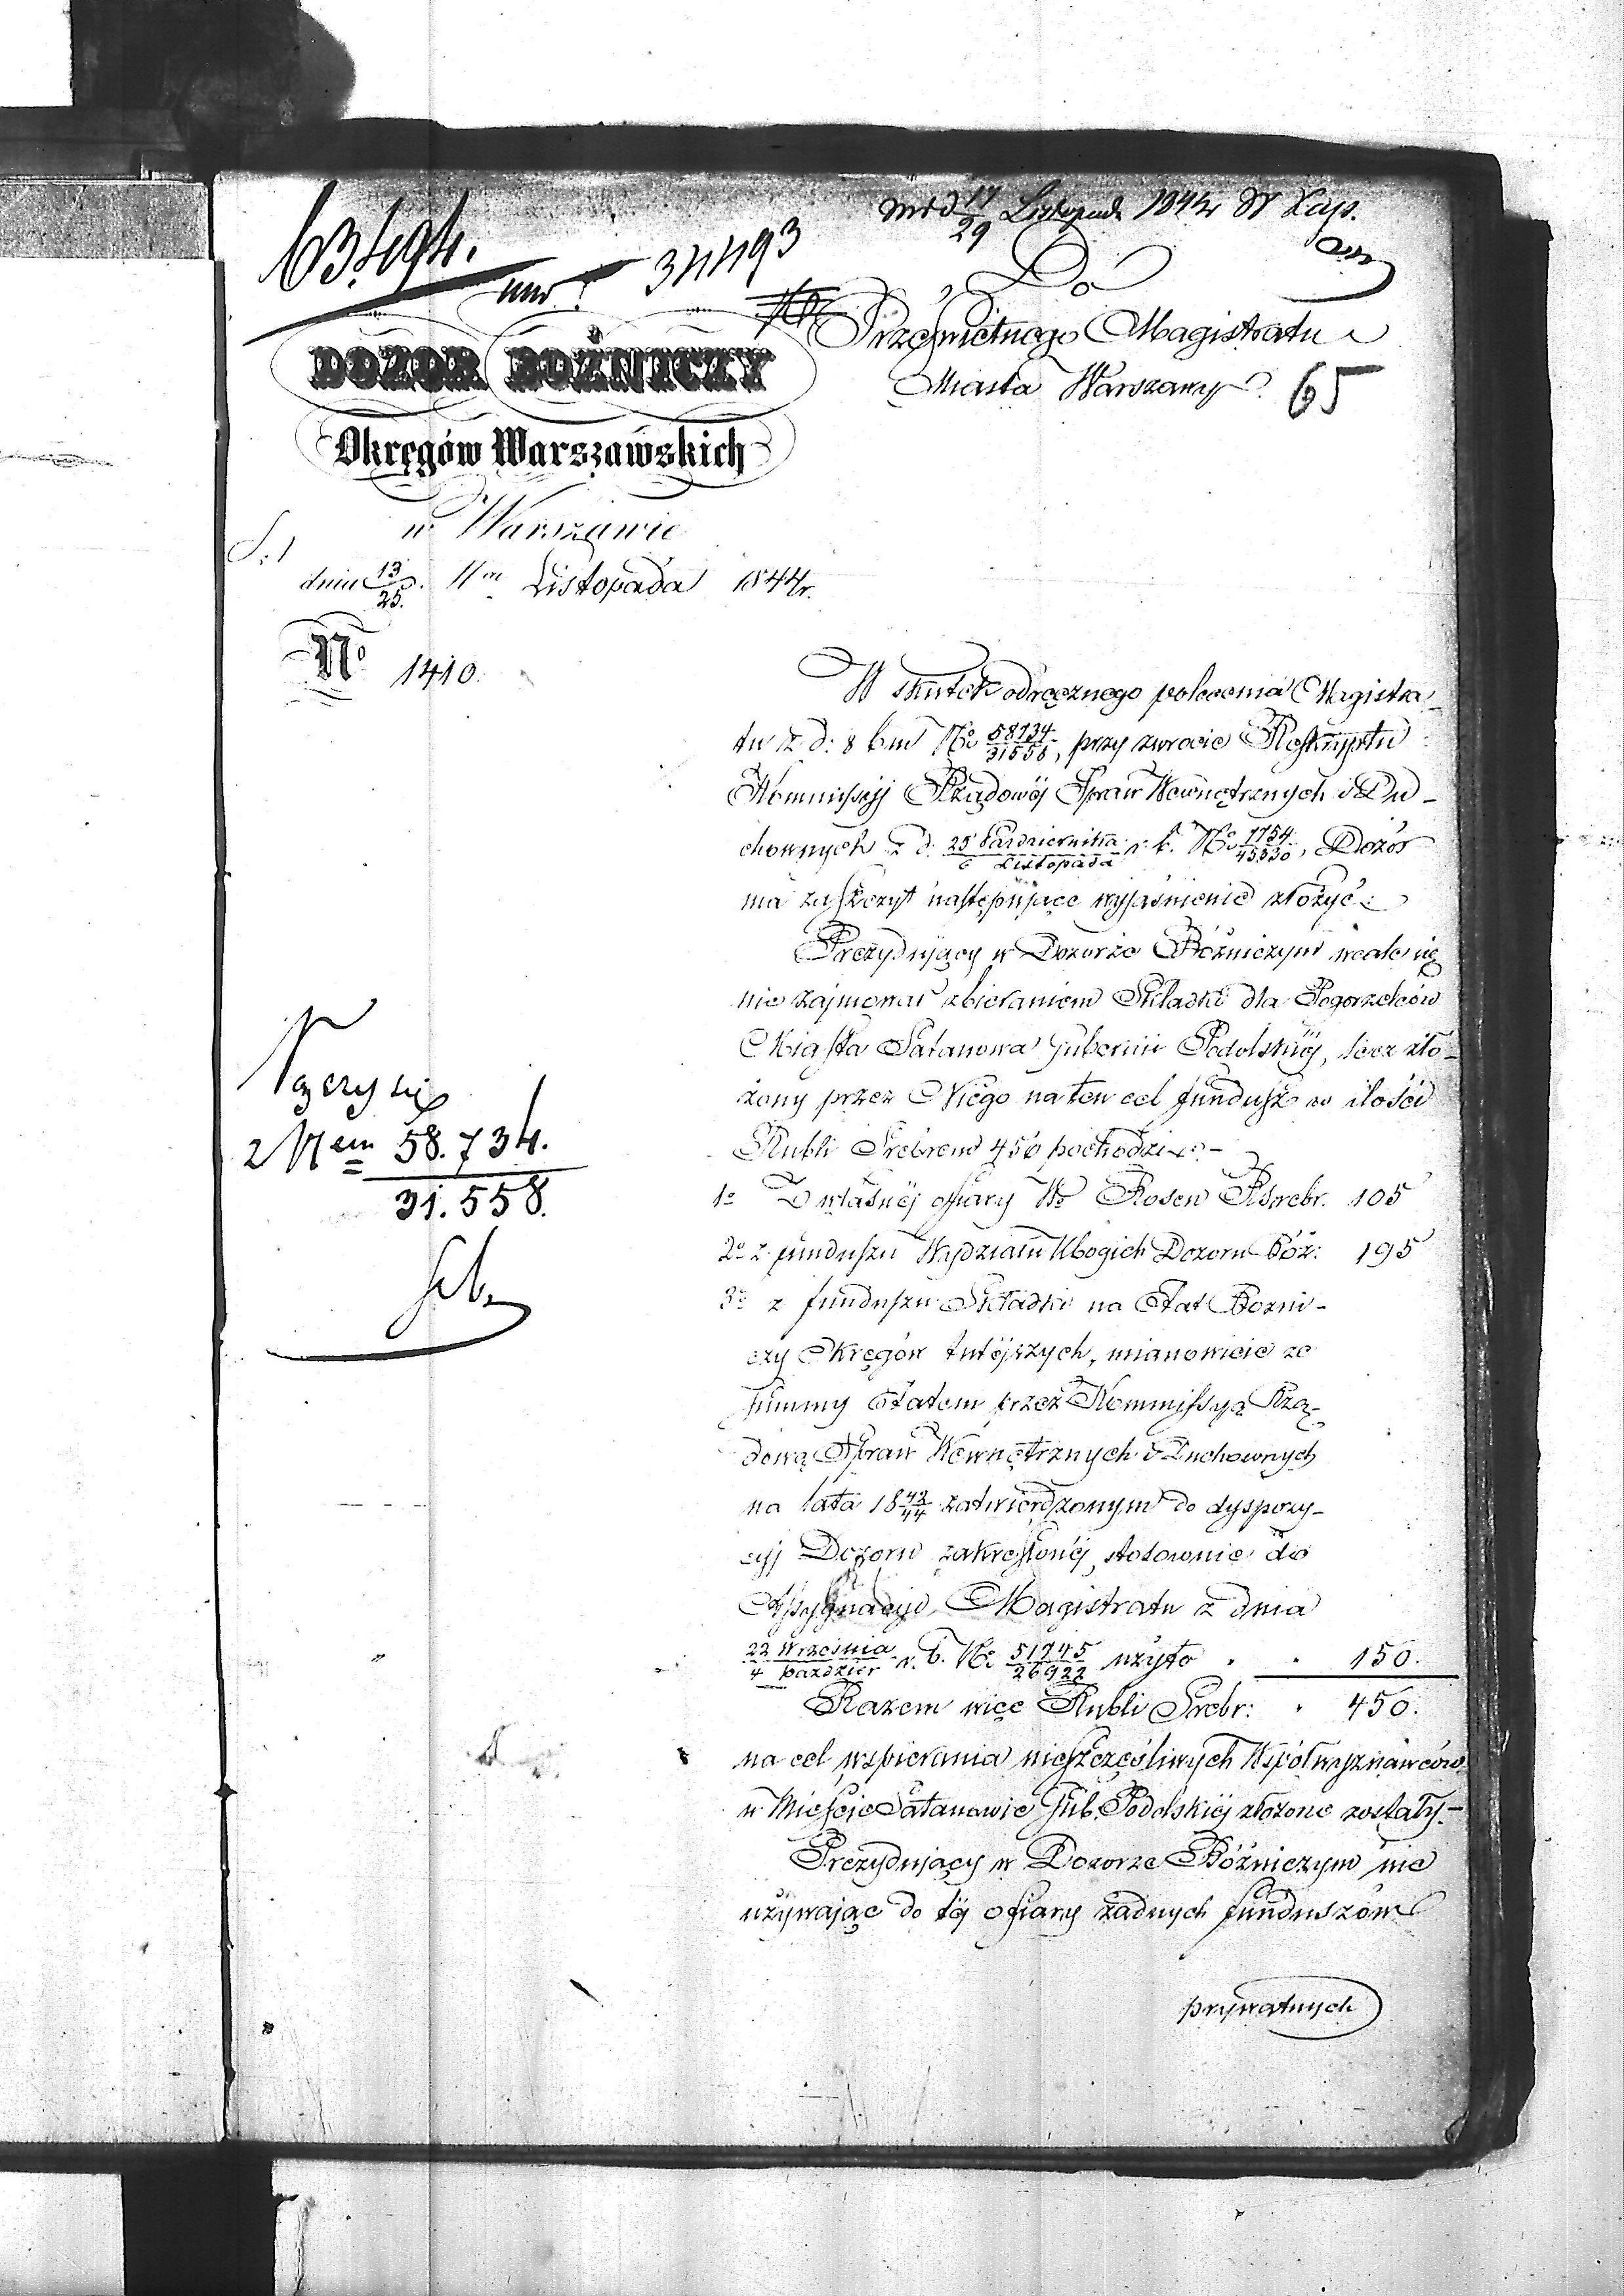 wpł d 17/29 Listopada 1844 W Zap.
63.494.
34493
Do
Prześwietnego Magistratu
Miasta Warszawy
65
DOZÓR BOŻNICZY
Okręgów Warszawskich
w Warszawie
dnia 13/25. Listopada 1844r.
No 1410.
W skutek odręcznego polecenia Magistra-
tu z d: 8 bm No 58734/31558, przy zwrocie Reskryptu
Kommissyj Rządowéj Spraw Wewnętrznych i Du-
chownych z d. 25 Października/6 Listopada r. b. No 1754/45530, Dozór
ma zaszczyt następujące wyjaśnienie złożyć:
Prezydujący w Dozorze Bóżniczym wcale się
nie zajmował zbieraniem Składki dla Pogorzelców
Miasta Satanowa Gubernii Podolskiéj, lecz zło-
żony przez Niego na ten cel fundusz w ilości
Rubli Srebrem 450 pochodzi:-
1o Z własnéj ofiary Wo Rosen Rsrebr. 105
2o z funduszu Wydziału Ubogich Dozoru Bóż: 195
3o z funduszu Składki na Etat Bożni-
czy Okręgów tutéjszych, mianowicie ze
Summy Etatem przez Kommissyą Rzą-
dową Spraw Wewnętrznych i Duchownych
na lata 18 42/44 zatwierdzonym do dyspozy-
cyj Dozoru zakreślonéj, stosownie do
Assygnacyi Magistratu z dnia
22 Września/4 Paździer r. b. No 51745/26922 użyto 150.
Razem więc Rubli Srebr: 450.
na cel wspierania nieszczęśliwych Współwyznawców
w Mieście Satanowie Gub. Podolskiéj złożone zostały.-
Prezydujący w Dozorze Bóżniczym nie
używając do téj ofiary żadnych funduszów
prywatnych
Łączy się
z Nem 58.734.
31.558.